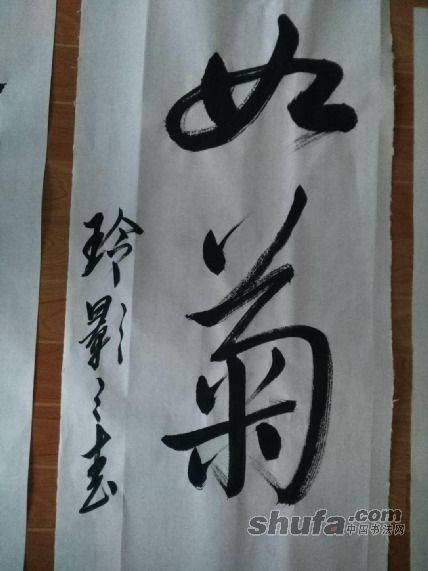 如菊
玲影之书
shufa.com
中国书法网